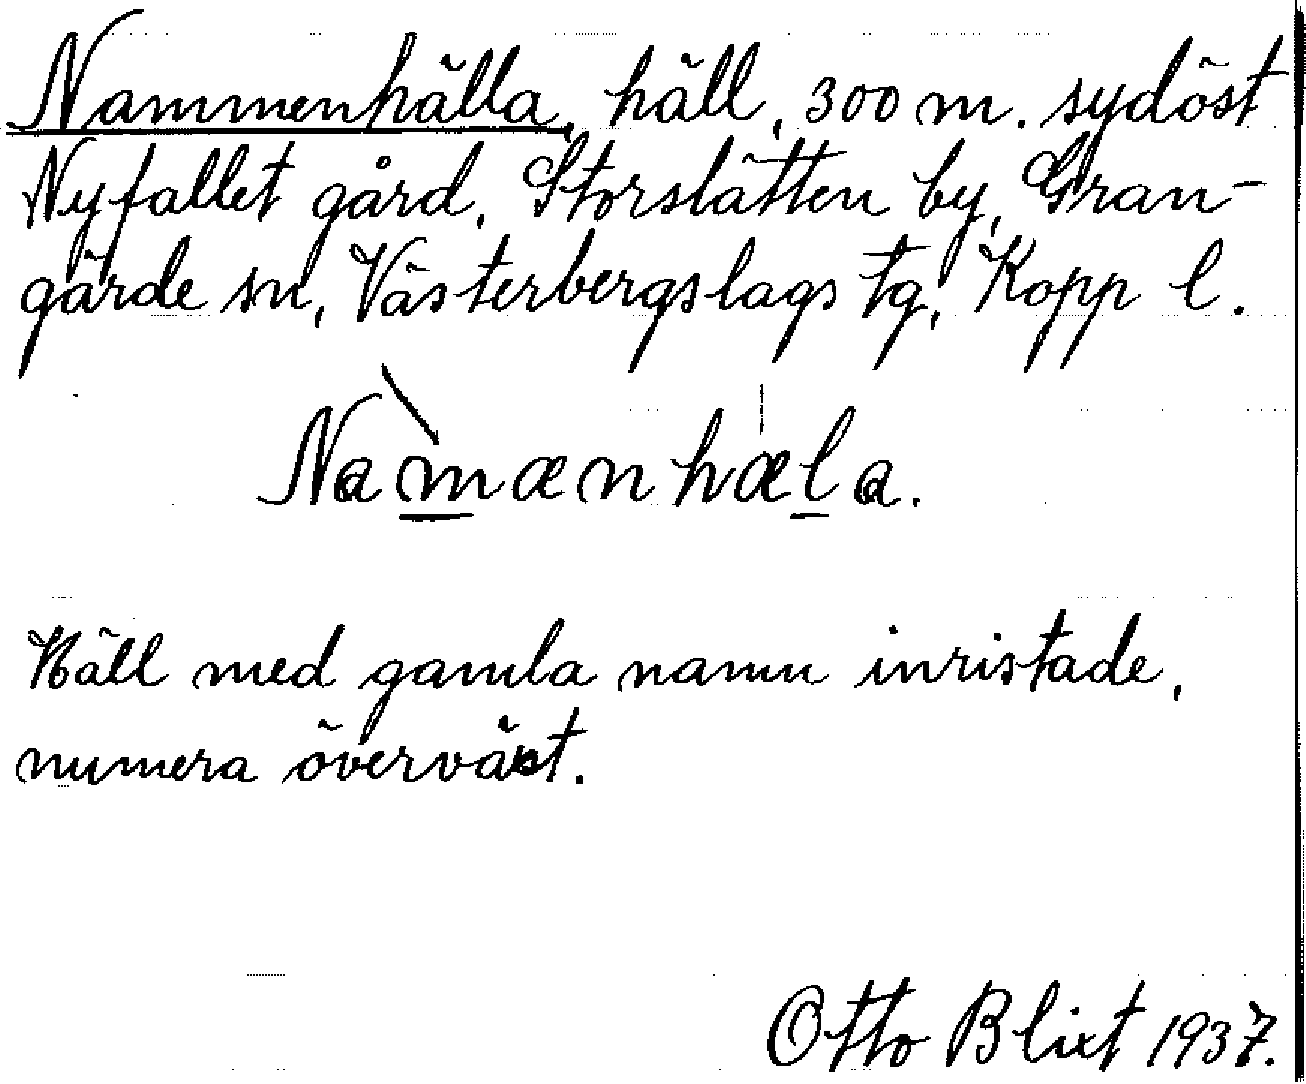 Nammenhälla, häll, 300 m. sydöst
Nyfallet gård, Storslätten by, Gran-
gärde sn, Västerbergslags tg, Kopp l.
Namænhæla.
Häll med gamla namn inristade,
numera överväxt.
Otto Blixt 1937.